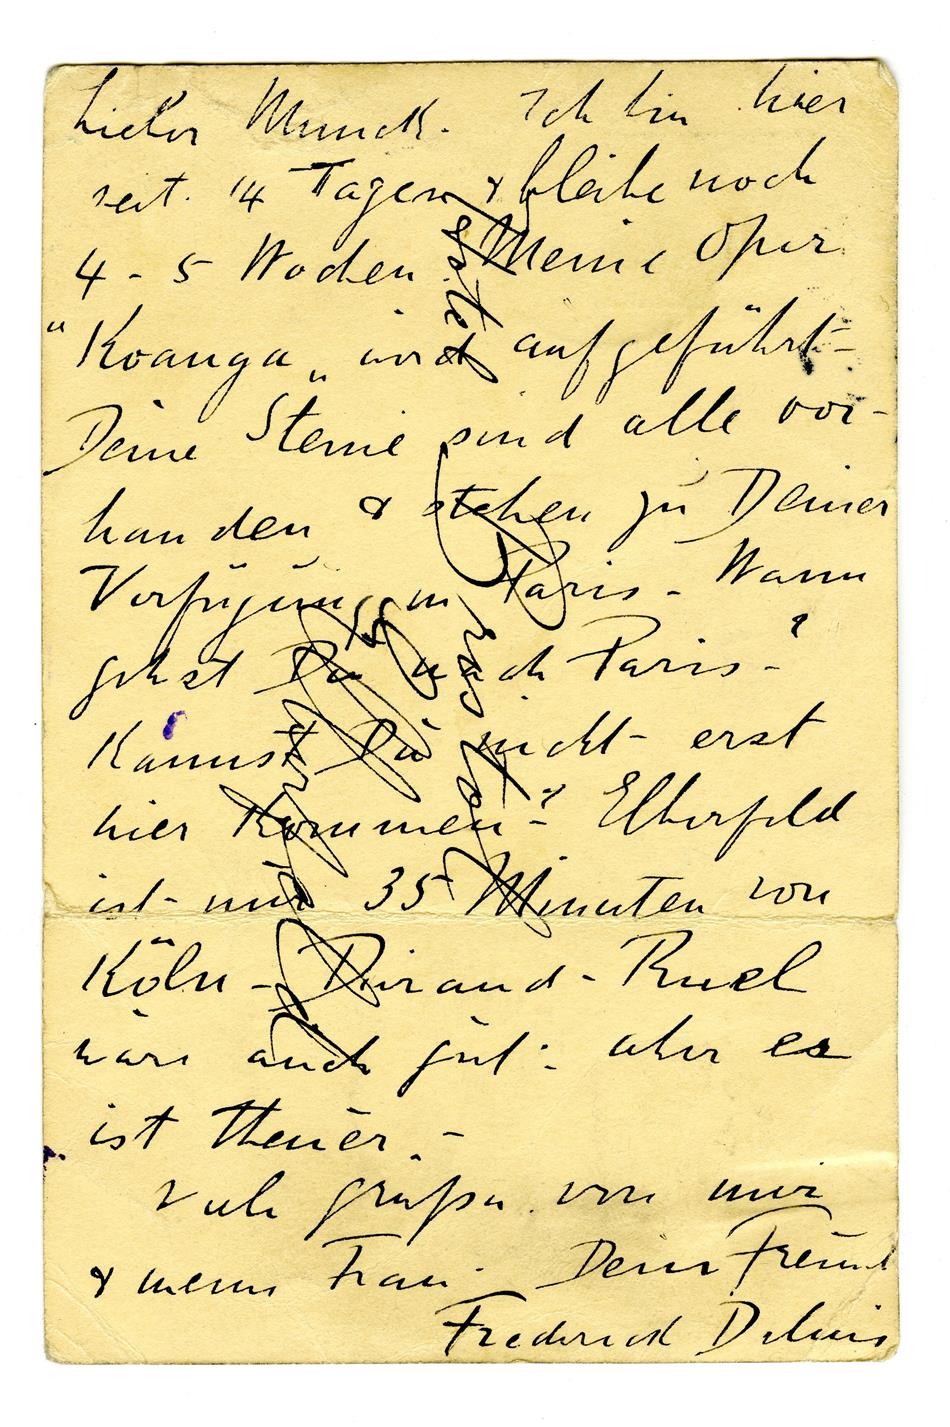 Lieber Munch. Ich bin hier
seit 14 Tagen & bleibe noch
4 - 5 Wochen Meine Oper
"Koanga" wird aufgeführt -
Deine Steine sind alle vor-
handen & stehen zu Deiner
Verfügung in Paris - Wann
gehst Du nach Paris - ?
Kannst Du nicht - erst
hier Kommen? - Elberfeld
ist - nur 35 Minuten von
Köln - Durand - Ruel
wäre auch gut - aber es
ist theuer. -
Viele grüsse von mir
& meine Frau - Dein Freund
Frederick Delius
Hotel
Bristol
Elberfeld